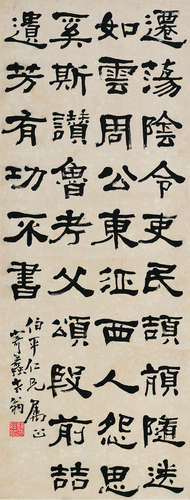 遷蕩陰令吏民頡頏隨送
如雲周公東征西人怨思
奚斯讚魯考父頌殷前喆
遺芳有功不書
伯平仁兄屬正
翁